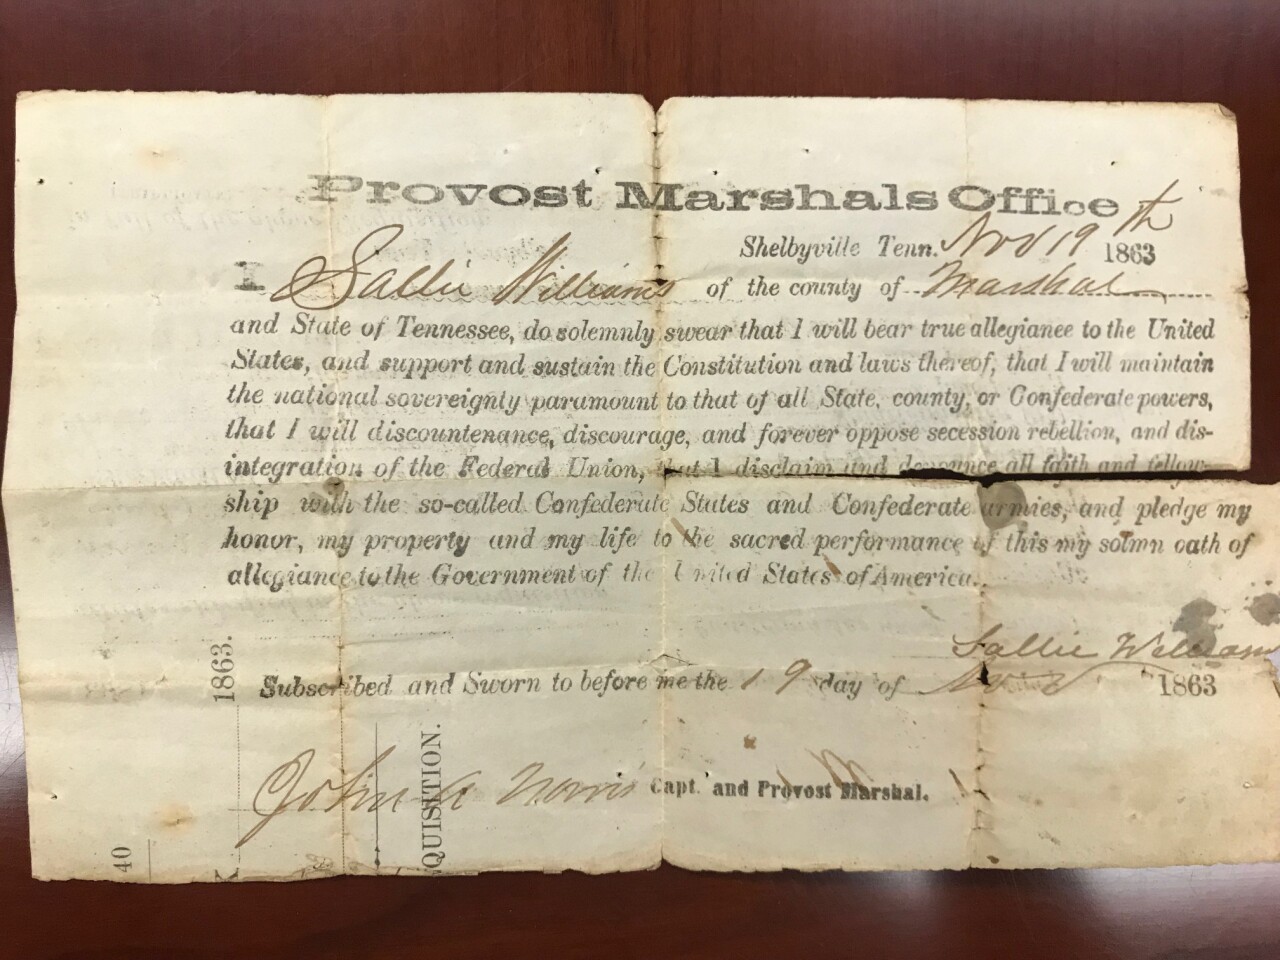 Provost Marshals Office
Shelbyville Tenn. Nov 19th 1863
I Sallie Williams of the county of Marshal
and State of Tennessee, do solemnly swear that I will bear true allegianee to the United
States, and support and sustain the Constitution and laws thereof, that I will maintain
the national sovereignty paramount to that of all State, county, or Confederate powers,
that I will discountenance, discourage, and forever oppose secession rebellion, and dis-
integration of the Federal Union, that I disclaim and denounce all faith and fellow-
ship with the so-called Confederate States and Confederate armies, and pledge my
honor, my property and my life to the sacred performance of this my solmn oath of
allegiance to the Government of the United States of America.
Sallie Williams
Subscribed and Sworn to before me the 19 day of Nov 1863
John A Norris Capt. and Provost Marshal.
1863.
QUISITION.
40